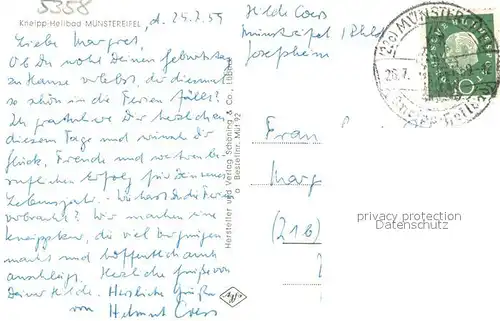 5358
Kneipp-Heilbad MÜNSTEREIFEL, d. 25.7.59
Liebe Margret,
Ob Du wohl Deinen Geburtstag
zu Hause verlebst, der diesmal
so schön in die Ferien fällt?
Ich gratuliere Dir herzlichst
diesem Tage und wünsche Dir
Glück, Freude und weiteren be-
ruflichen Erfolg für Dein neues
Lebensjahr. Wo hast Du die Ferien
verbracht? Wir machen eine
Kneippkur, die viel Vergnügen
macht und hoffentlich auch
anschlägt. Herzliche Grüße von
Deiner Hilde. Herzliche Grüße
von Helmut Coers
Hersteller und Verlag Schöning & Co., Lübeck
Bestellnr. Mül 92
Hilde Coers
Münstereifel / Rhld
Josephheim
(22c) MÜNSTER
26.7.
Frau
Marg
(21b)
privacy protection
Datenschutz